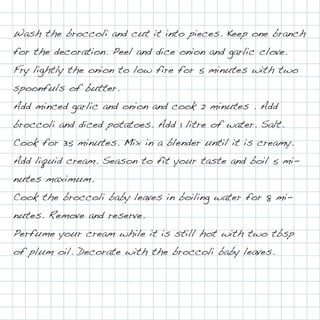 Wash the broccoli and cut it into pieces. Keep one branch
for the decoration. Peel and dice onion and garlic clove.
Fry lightly the onion to low fire for 5 minutes with two
spoonfuls of butter.
Add minced garlic and onion and cook 2 minutes . Add
broccoli and diced potatoes. Add 1 litre of water. Salt.
Cook for 35 minutes. Mix in a blender until it is creamy.
Add liquid cream. Season to fit your taste and boil 5 mi-
nutes maximum.
Cook the broccoli baby leaves in boiling water for 8 mi-
nutes. Remove and reserve.
Perfume your cream while it is still hot with two tbsp
of plum oil. Decorate with the broccoli baby leaves.